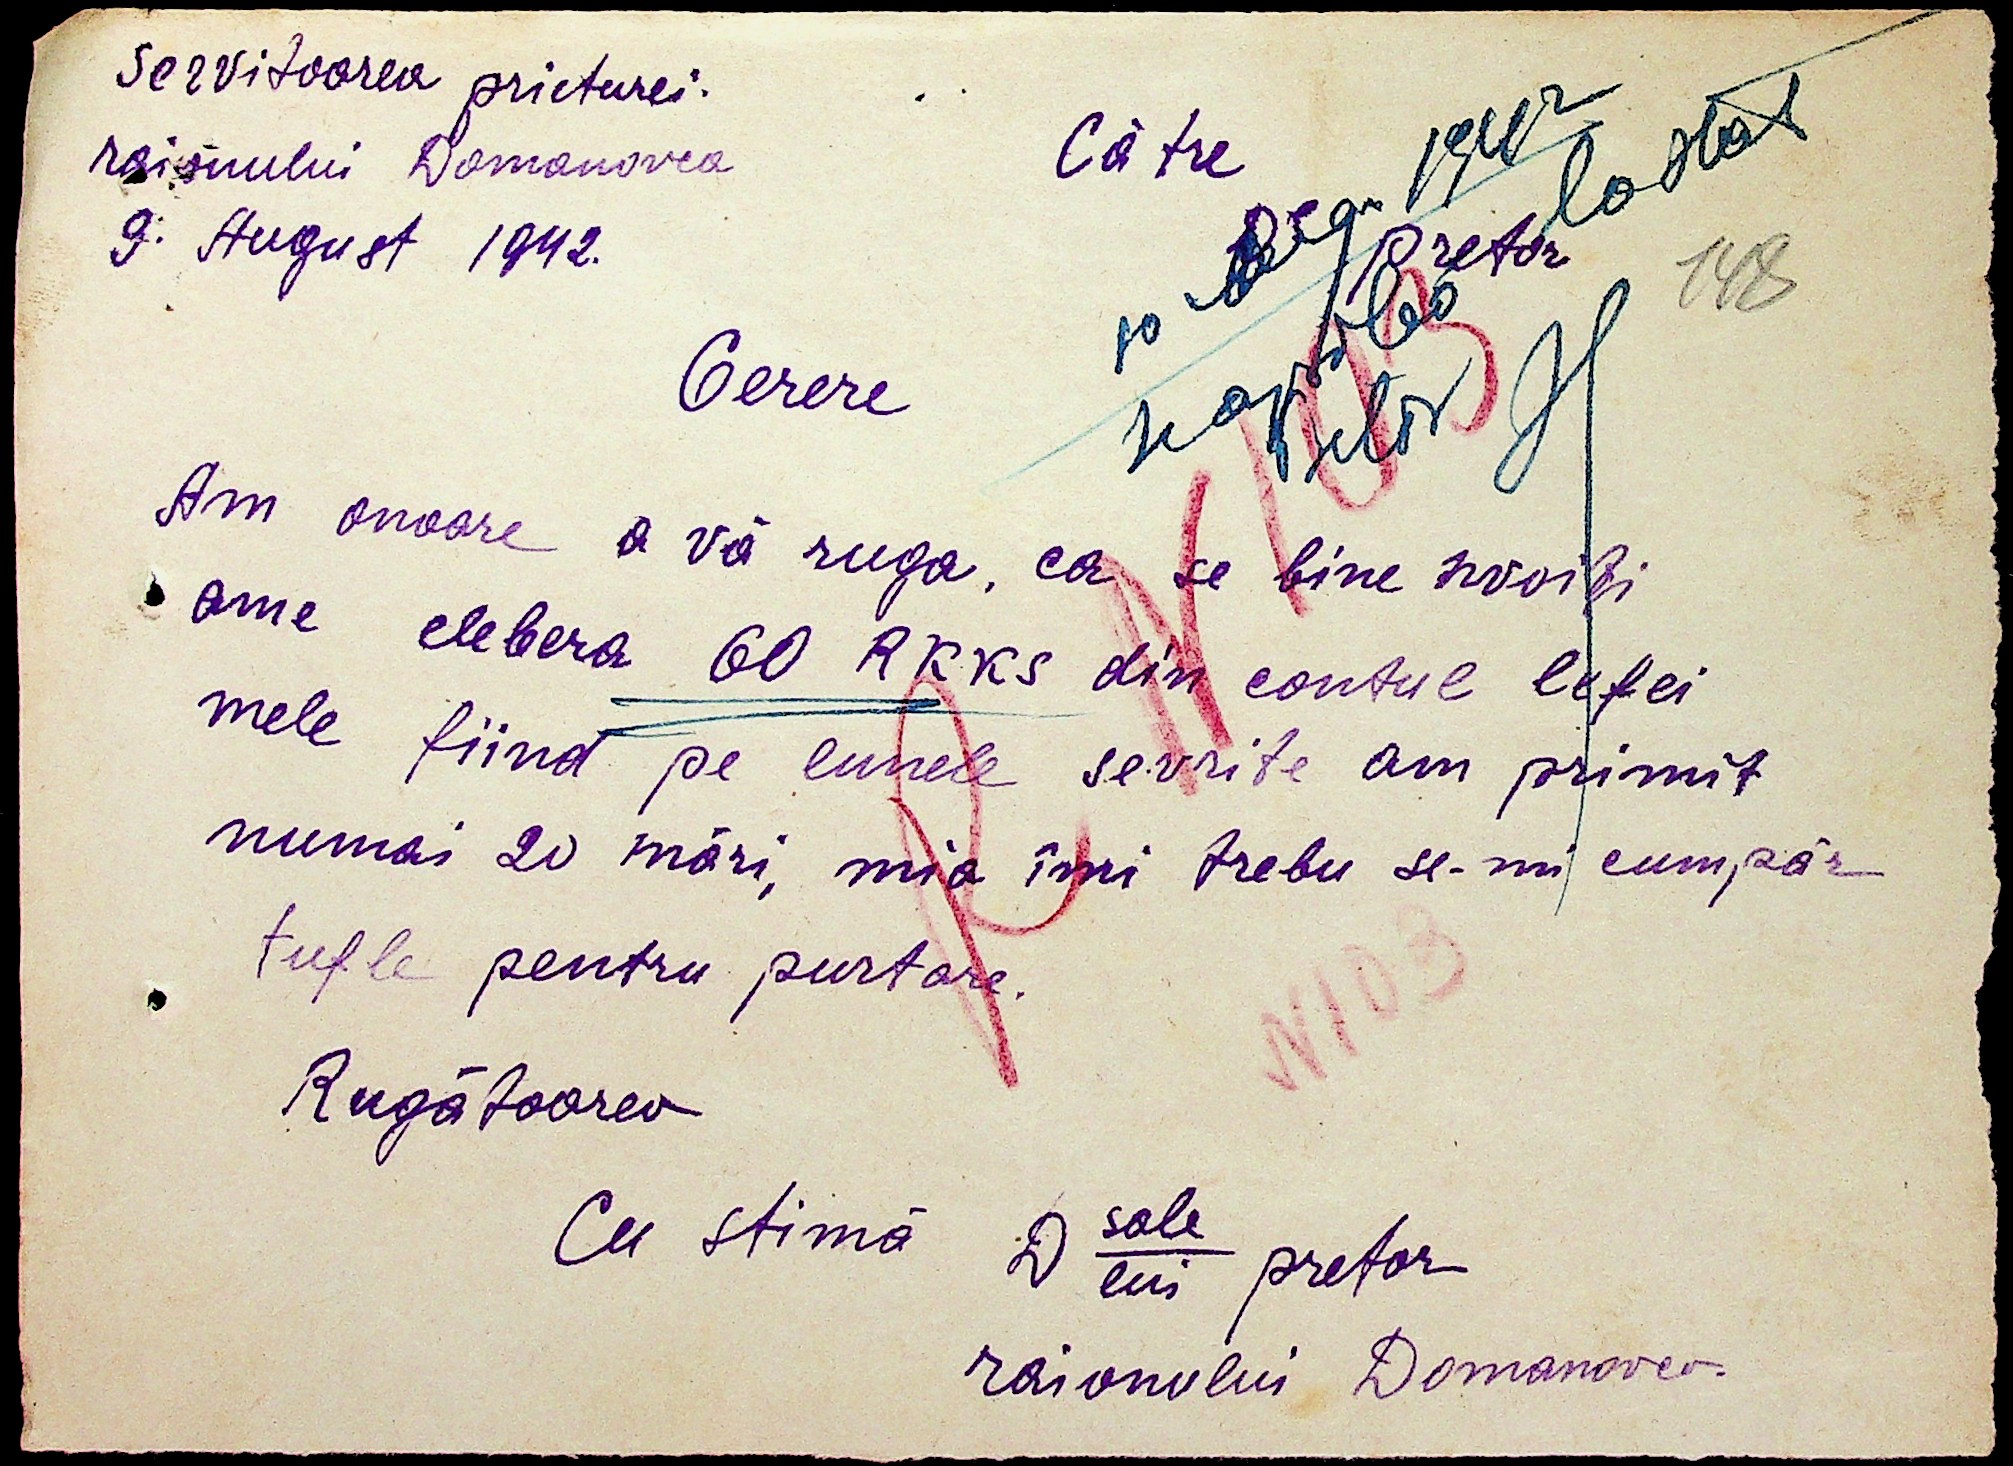 Servitoarea prieturei.
raionului Domanovca
9. August 1942.
Către
Pretor
148
Cerere
Am onoare a vă ruga, ca se bine nvoiți
ame elebera 60 RKKS din contul lefei
mele fiind pe lunele sevrite am primit
numai 20 mări, mia îmi trebu se-mi cumpăr
tufle pentru purtare.
Rugătoarea
Cu stimă D sale/lui pretor
raionului Domanovca.
10 Aug. 1942
la stat
R N 103
N103